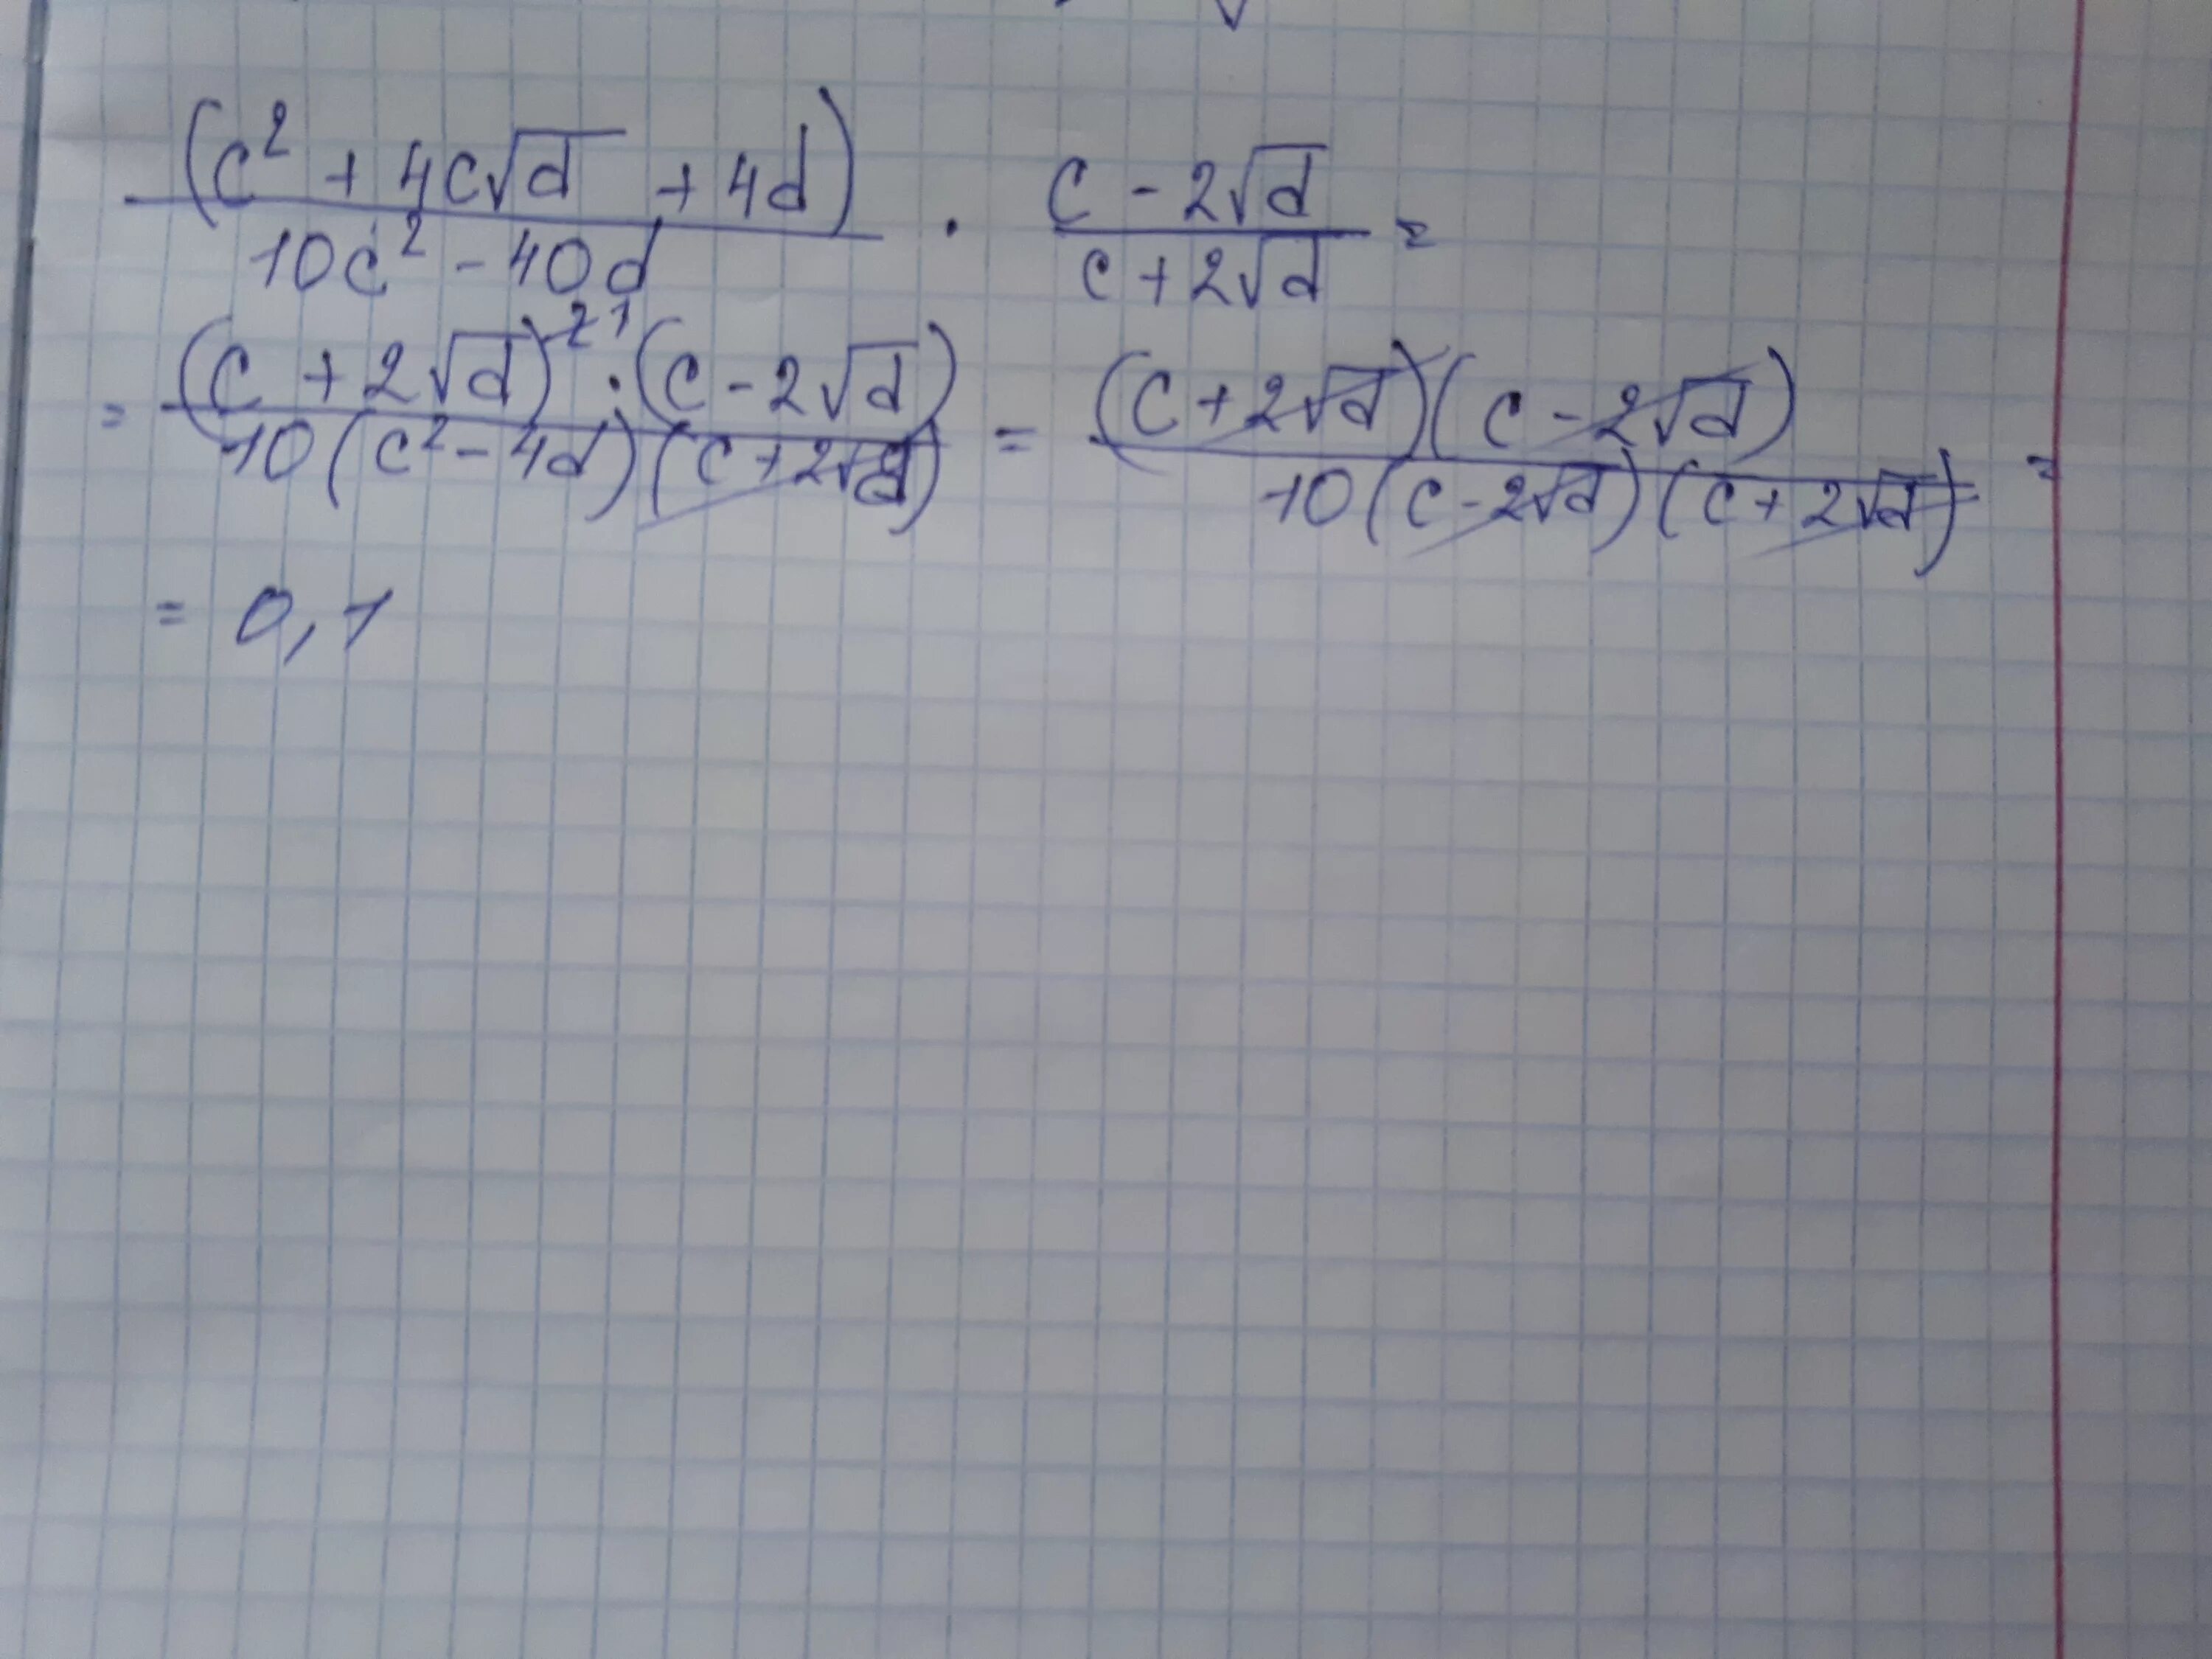 (c² + 4c√d + 4d) / (10c² - 40d) · (c - 2√d) / (c + 2√d) =
= (c + 2√d)² ¹ · (c - 2√d) / 10(c² - 4d)(c + 2√d) = (c + 2√d)(c - 2√d) / 10(c - 2√d)(c + 2√d) =
= 0,1